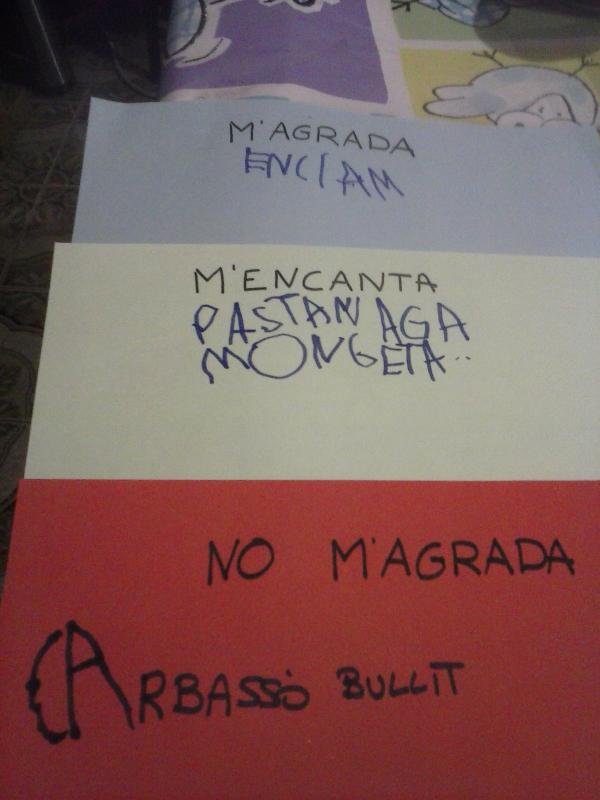 M'AGRADA
ENCIAM
M'ENCANTA
PASTANAGA
MONGETA..
NO M'AGRADA
CARBASSÒ BULLIT